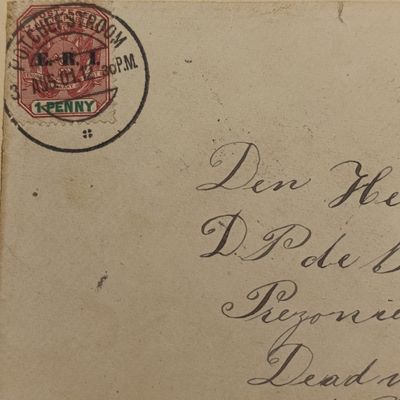 POTCHEFSTROOM
3 AUG 01 12.30 P.M.
E.R.I.
1 PENNY
Den He
D. P. de
Prezonie
Dead